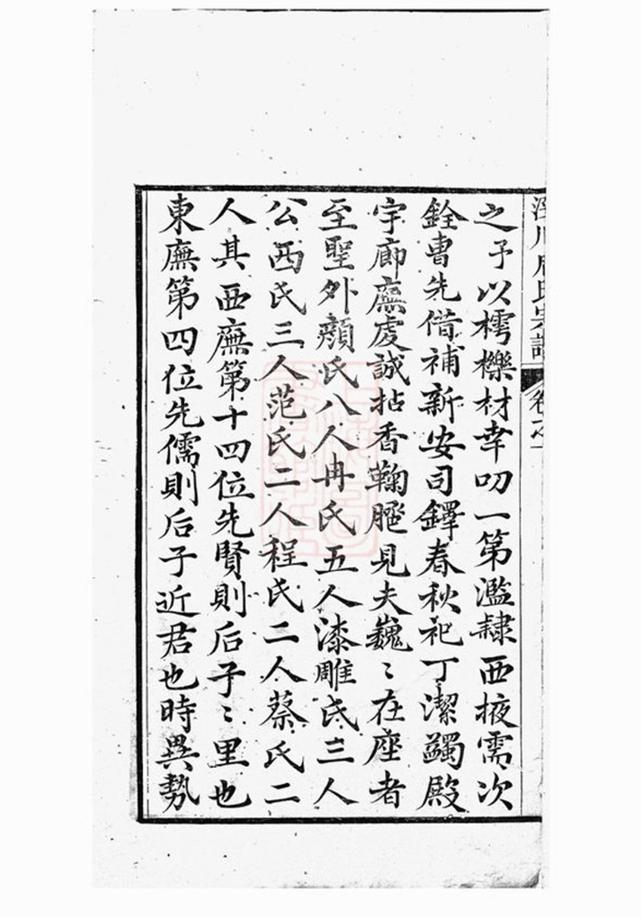 川氏宗譜 卷之一
之予以樗櫟材幸叨一第濫隸西掖需次
銓曹先借補新安司鐸春秋祀丁潔蠲殿
宇廊廡虔誠拈香鞠見夫巍〻在座者
至聖外顏氏八人冉氏五人漆雕氏三人
公西氏三人范氏二人程氏二人蔡氏二
人其西廡第十四位先賢則后子〻里也
東廡第四位先儒則后子近君也時異勢